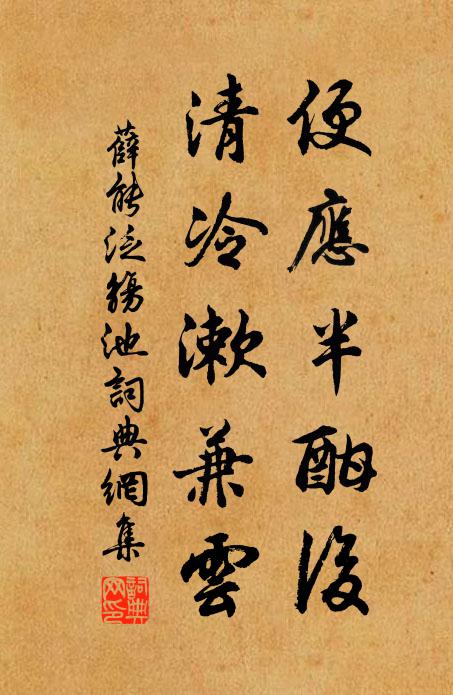 便應半酣後
清冷漱兼雲
薛能泛觴池詞典網集
詞典網印